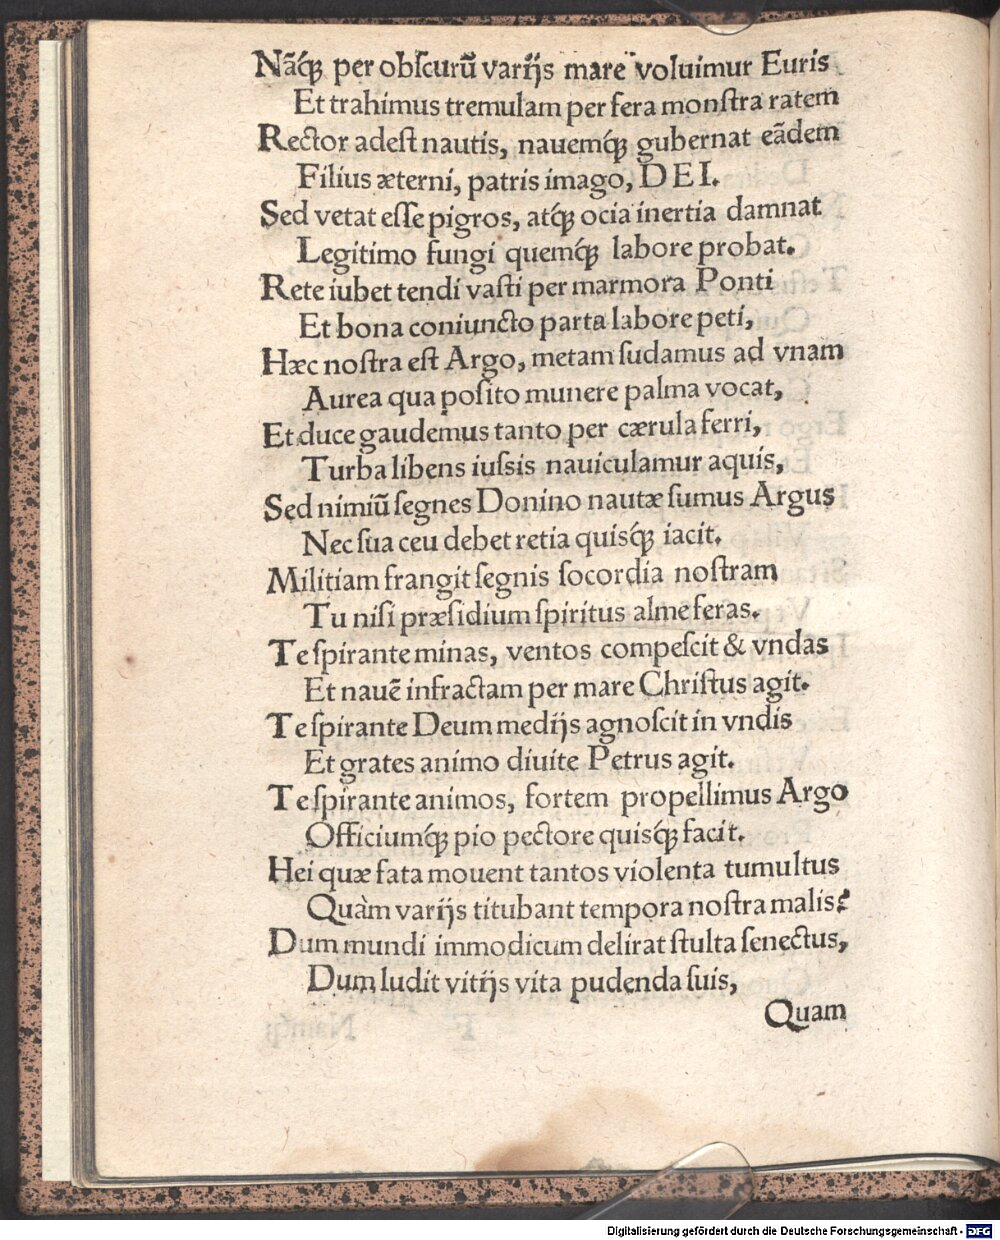 Nãq́ꝫ per obſcurũ varijs mare voluimur Euris
Et trahimus tremulam per fera monſtra ratem
Rector adeſt nautis, nauemq́ꝫ gubernat eãdem
Filius æterni, patris imago, DEI.
Sed vetat eſſe pigros, atq́ꝫ ocia inertia damnat
Legitimo fungi quemq́ꝫ labore probat.
Rete iubet tendi vaſti per marmora Ponti
Et bona coniuncto parta labore peti,
Hæc noſtra eſt Argo, metam ſudamus ad vnam
Aurea qua poſito munere palma vocat,
Et duce gaudemus tanto per cærula ferri,
Turba libens iuſsis nauiculamur aquis,
Sed nimiũ ſegnes Donino nautæ ſumus Argus
Nec ſua ceu debet retia quisq́ꝫ iacit.
Militiam frangit ſegnis ſocordia noſtram
Tu niſi præſidium ſpiritus alme feras.
Te ſpirante minas, ventos compeſcit & vndas
Et nauẽ infractam per mare Chriſtus agit.
Te ſpirante Deum medijs agnoſcit in vndis
Et grates animo diuite Petrus agit.
Te ſpirante animos, fortem propellimus Argo
Officiumq́ꝫ pio pectore quisq́ꝫ facit.
Hei quæ fata mouent tantos violenta tumultus
Quàm varijs titubant tempora noſtra malis?
Dum mundi immodicum delirat ſtulta ſenectus,
Dum ludit vitijs vita pudenda ſuis,
Quam
Digitalisierung gefördert durch die Deutsche Forschungsgemeinschaft - DFG